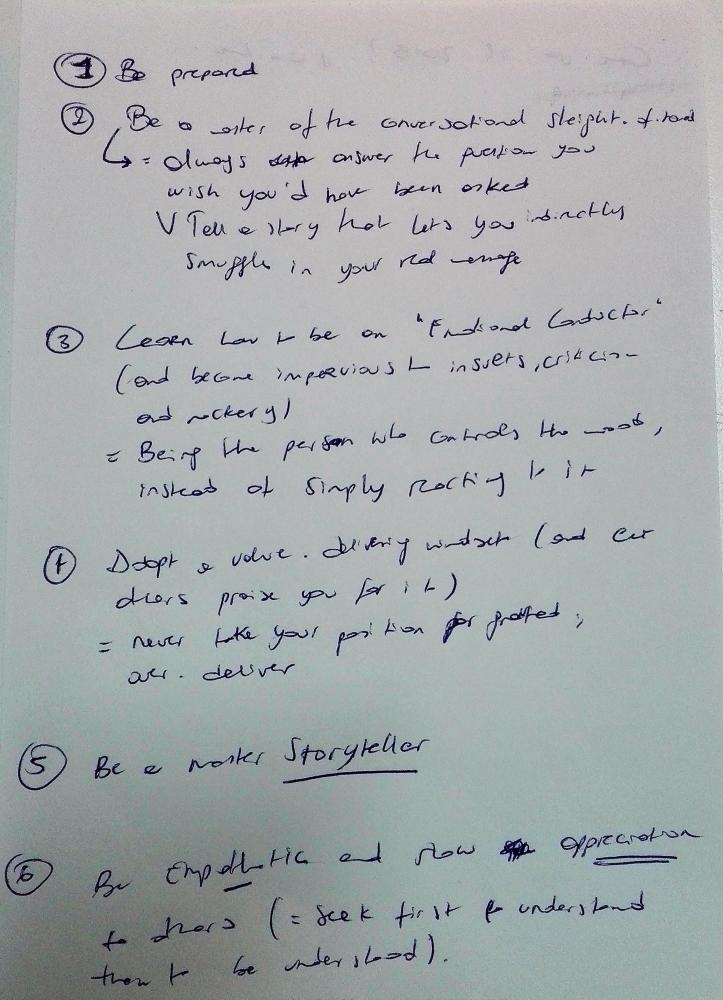 1 Be prepared
2 Be a master of the conversational sleight-of-hand
= always answer the question you
wish you'd have been asked
V Tell a story that lets you indirectly
smuggle in your real message
3 Learn how to be an "Emotional Conductor"
(and become impervious to insults, criticism
and mockery)
= Being the person who controls the mood,
instead of simply reacting to it
4 Adopt a value-delivering mindset (and let
others praise you for it)
= never take your position for granted,
over-deliver
5 Be a master Storyteller
6 Be Empathetic and show appreciation
to others (= seek first to understand
then to be understood).